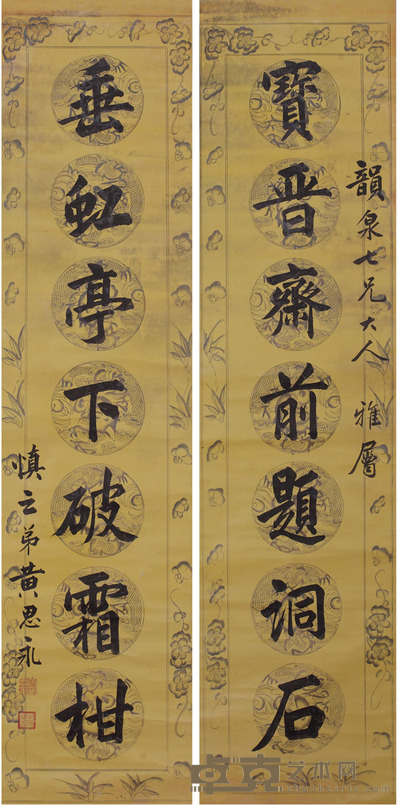 韻泉七兄大人 雅屬
寶晉齋前題詞石
垂虹亭下破霜柑
慎之弟黃思永
卓克艺术网